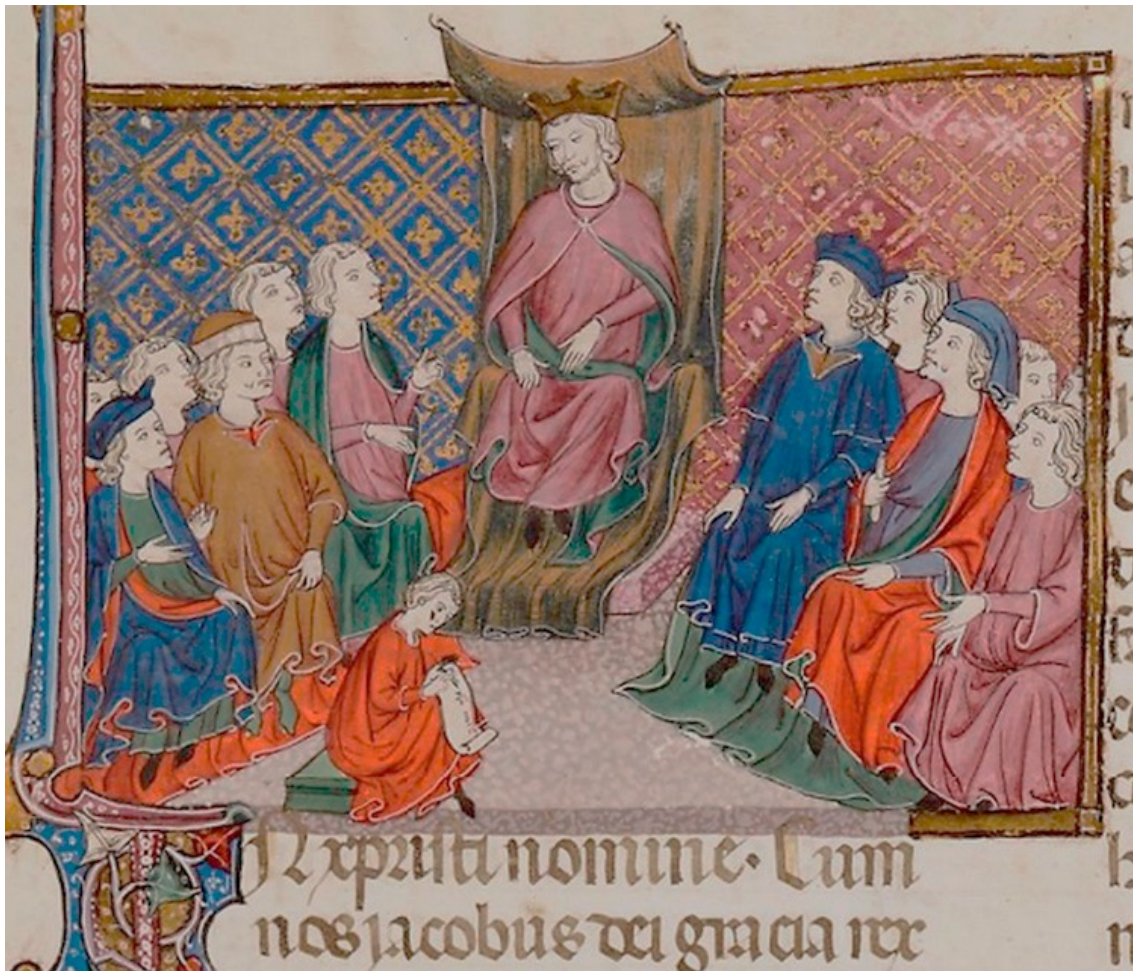 IN xpristi nomine. Cum
nos jacobus dei gracia rex